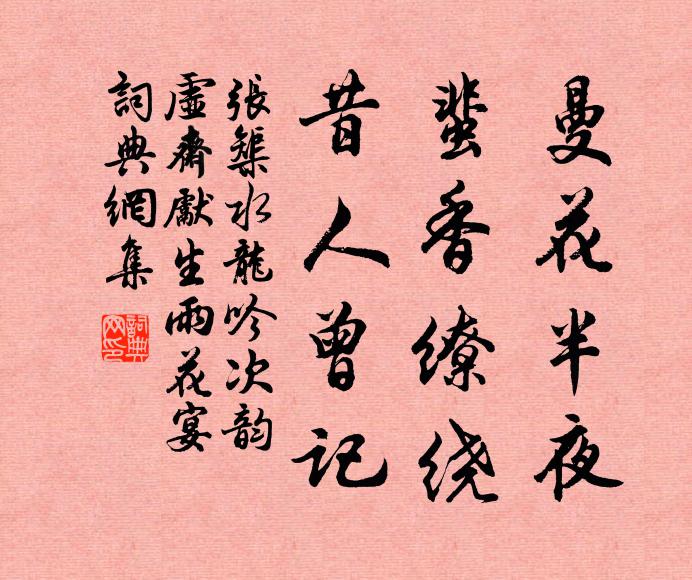 曼花半夜
蜚香缭绕
昔人曾记
張榘水龍吟次韵
虛齋獻生雨花宴
詞典網集
詞典网印